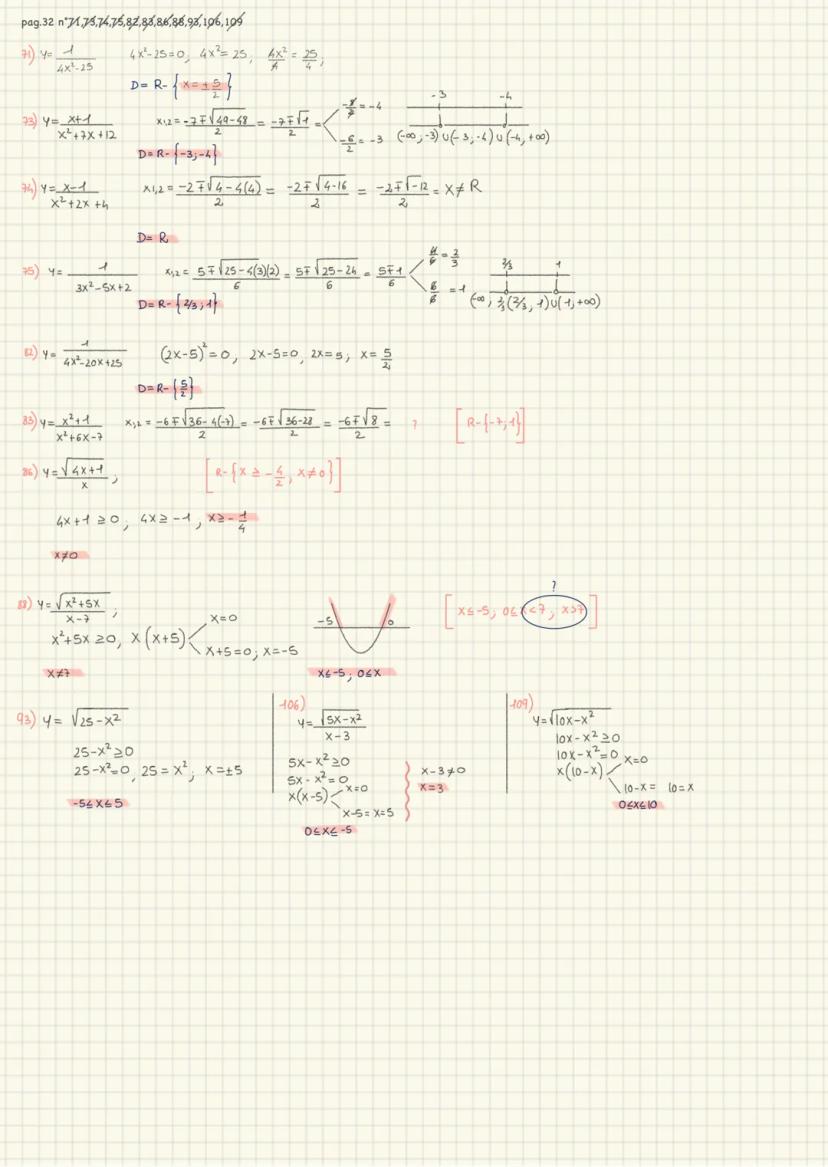 pag.32 n°71,73,74,75,82,83,86,88,93,106,109
71) y= 1/(4x²-25) 4x²-25=0, 4x²=25, 4x²/4 = 25/4;
D= R- { x=±5/2 }
73) y= (x+1)/(x²+7x+12) x1,2 = (-7∓√(49-48))/2 = (-7∓√1)/2 = -8/2 = -4 -3 -4
-6/2 = -3 (-∞;-3) ∪(-3;-4) ∪(-4,+∞)
D=R-{-3;-4}
74) y= (x-1)/(x²+2x+4) x1,2 = (-2∓√(4-4(4)))/2 = (-2∓√(4-16))/2 = (-2∓√-12)/2 = x≠R
D= R
75) y= 1/(3x²-5x+2) x1,2 = (5∓√(25-4(3)(2)))/6 = (5∓√(25-24))/6 = (5∓1)/6 4/6 = 2/3 2/3 1
6/6 = 1 (-∞; 2/3(2/3, 1)∪(1;+∞)
D=R-{2/3;1}
82) y= 1/(4x²-20x+25) (2x-5)²=0, 2x-5=0, 2x=5; x=5/2
D=R-{5/2}
83) y= (x²+1)/(x²+6x-7) x1,2 = (-6∓√(36-4(-7)))/2 = (-6∓√(36-28))/2 = (-6∓√8)/2 = ? [R-{-7;1}]
86) y= √(4x+1)/x ; [R-{x≥-4/2, x≠0}]
4x+1≥0; 4x≥-1, x≥-1/4
x≠0
88) y= √(x²+5x)/(x-7) ; -5 0 [x≤-5; 0≤x<7; x>7] ?
x²+5x≥0, x(x+5) x=0
x+5=0; x=-5
x≠7 x≤-5; 0≤x
93) y= √(25-x²)
25-x²≥0
25-x²=0, 25=x²; x=±5
-5≤x≤5
106)
y= √(5x-x²)/(x-3)
5x-x²≥0
5x-x²=0
x(x-5) x=0
x-5=x=5
0≤x≤-5
x-3≠0
x=3
109)
y=√(10x-x²)
10x-x²≥0
10x-x²=0
x(10-x) x=0
10-x= 10=x
0≤x≤10